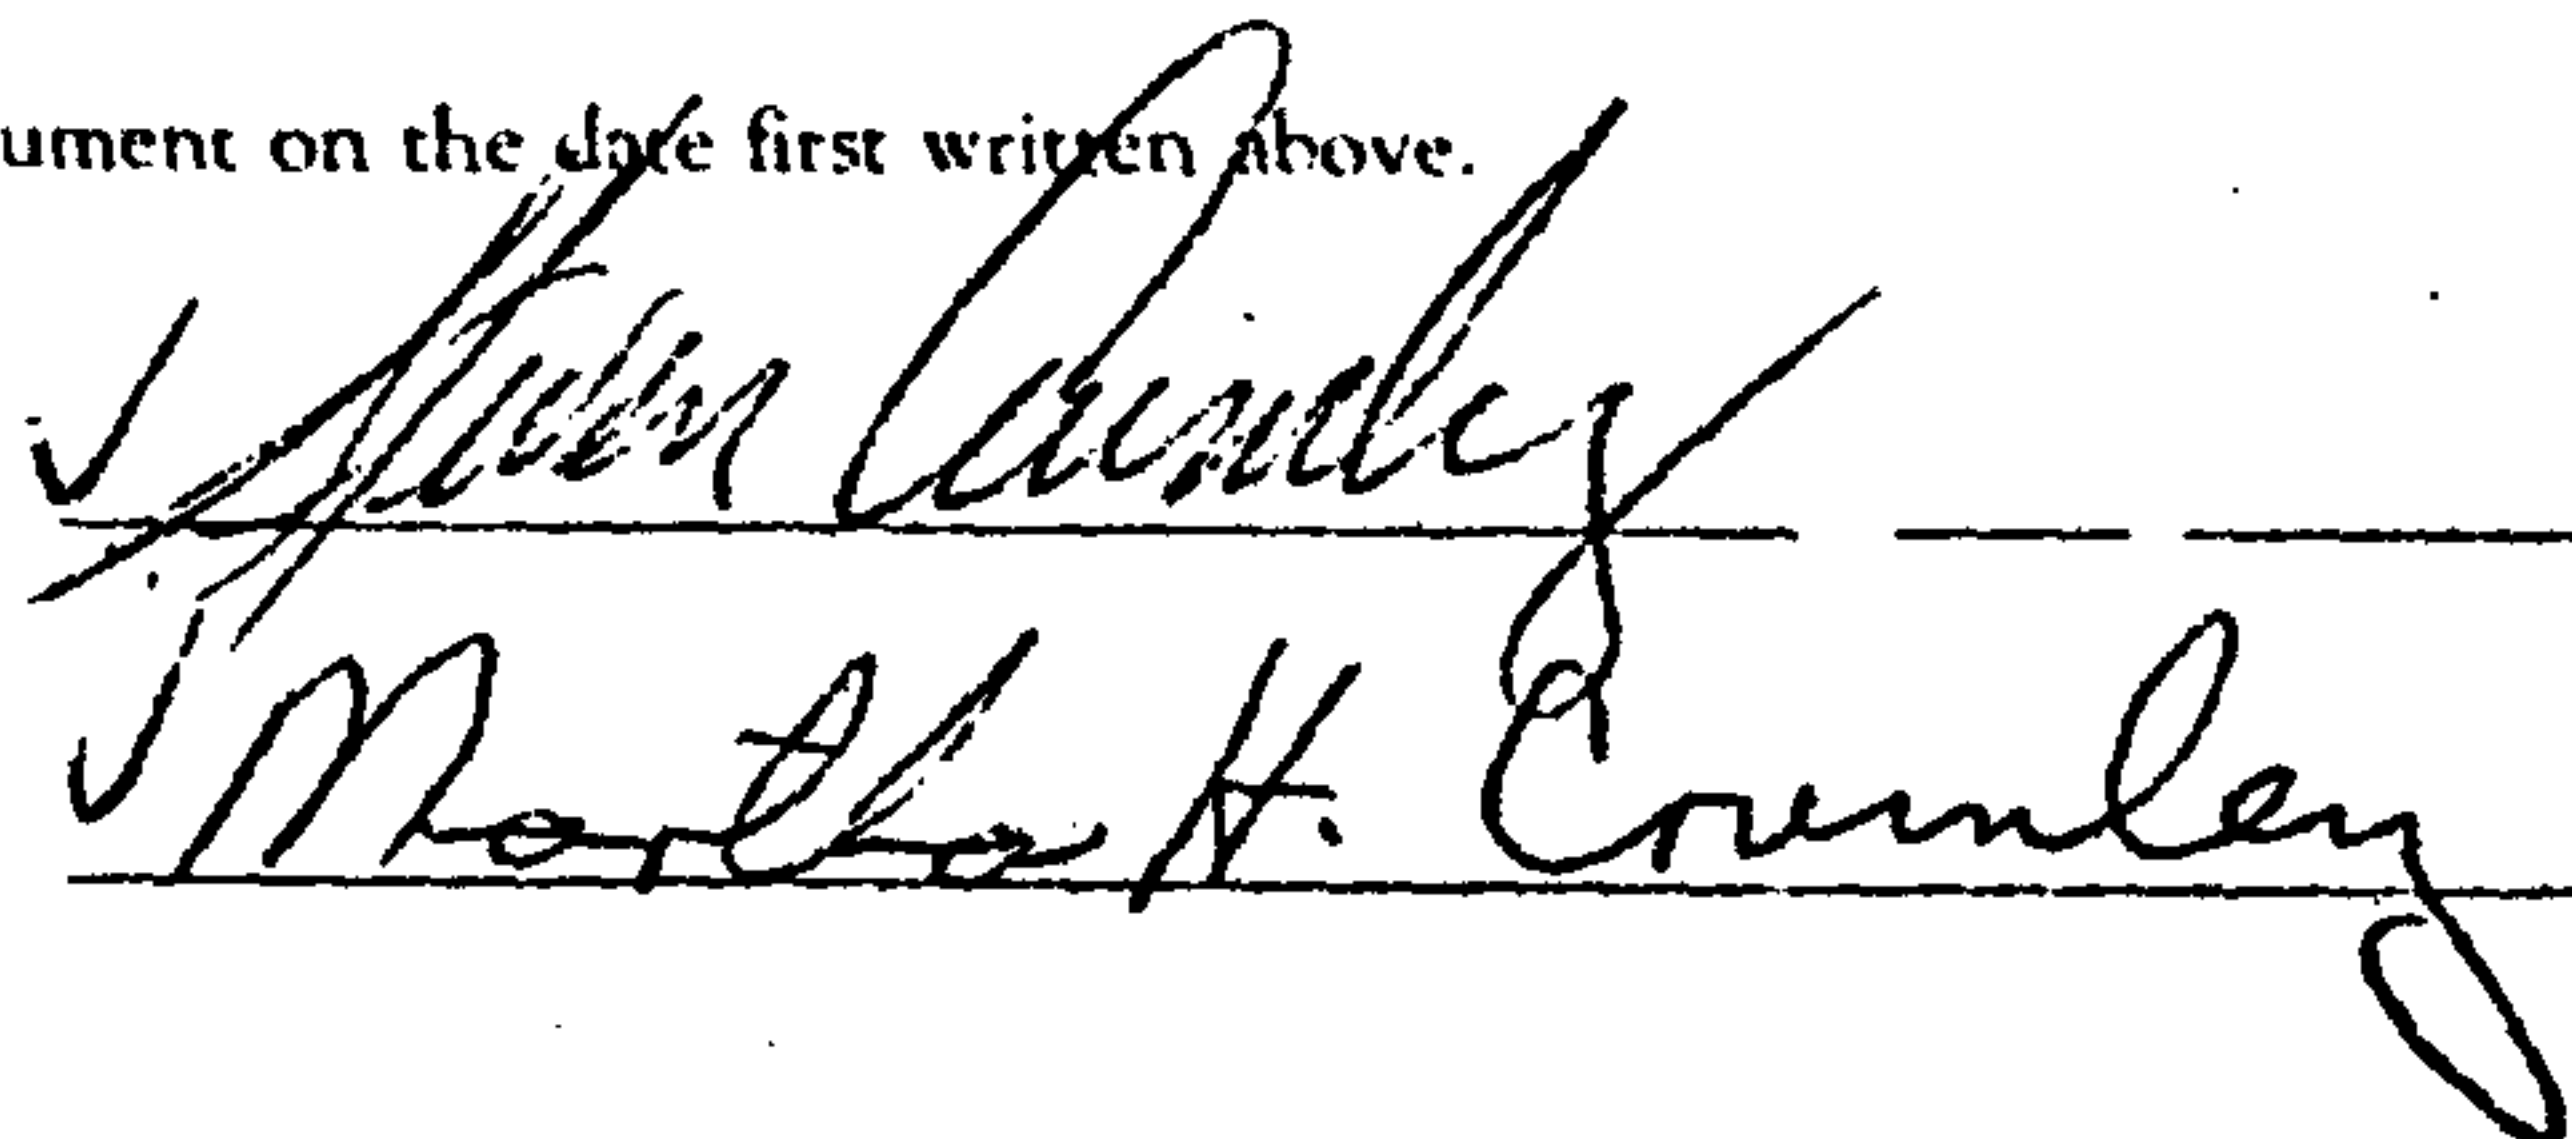 ument on the date first written above.
Crumley
Martha H. Crumley